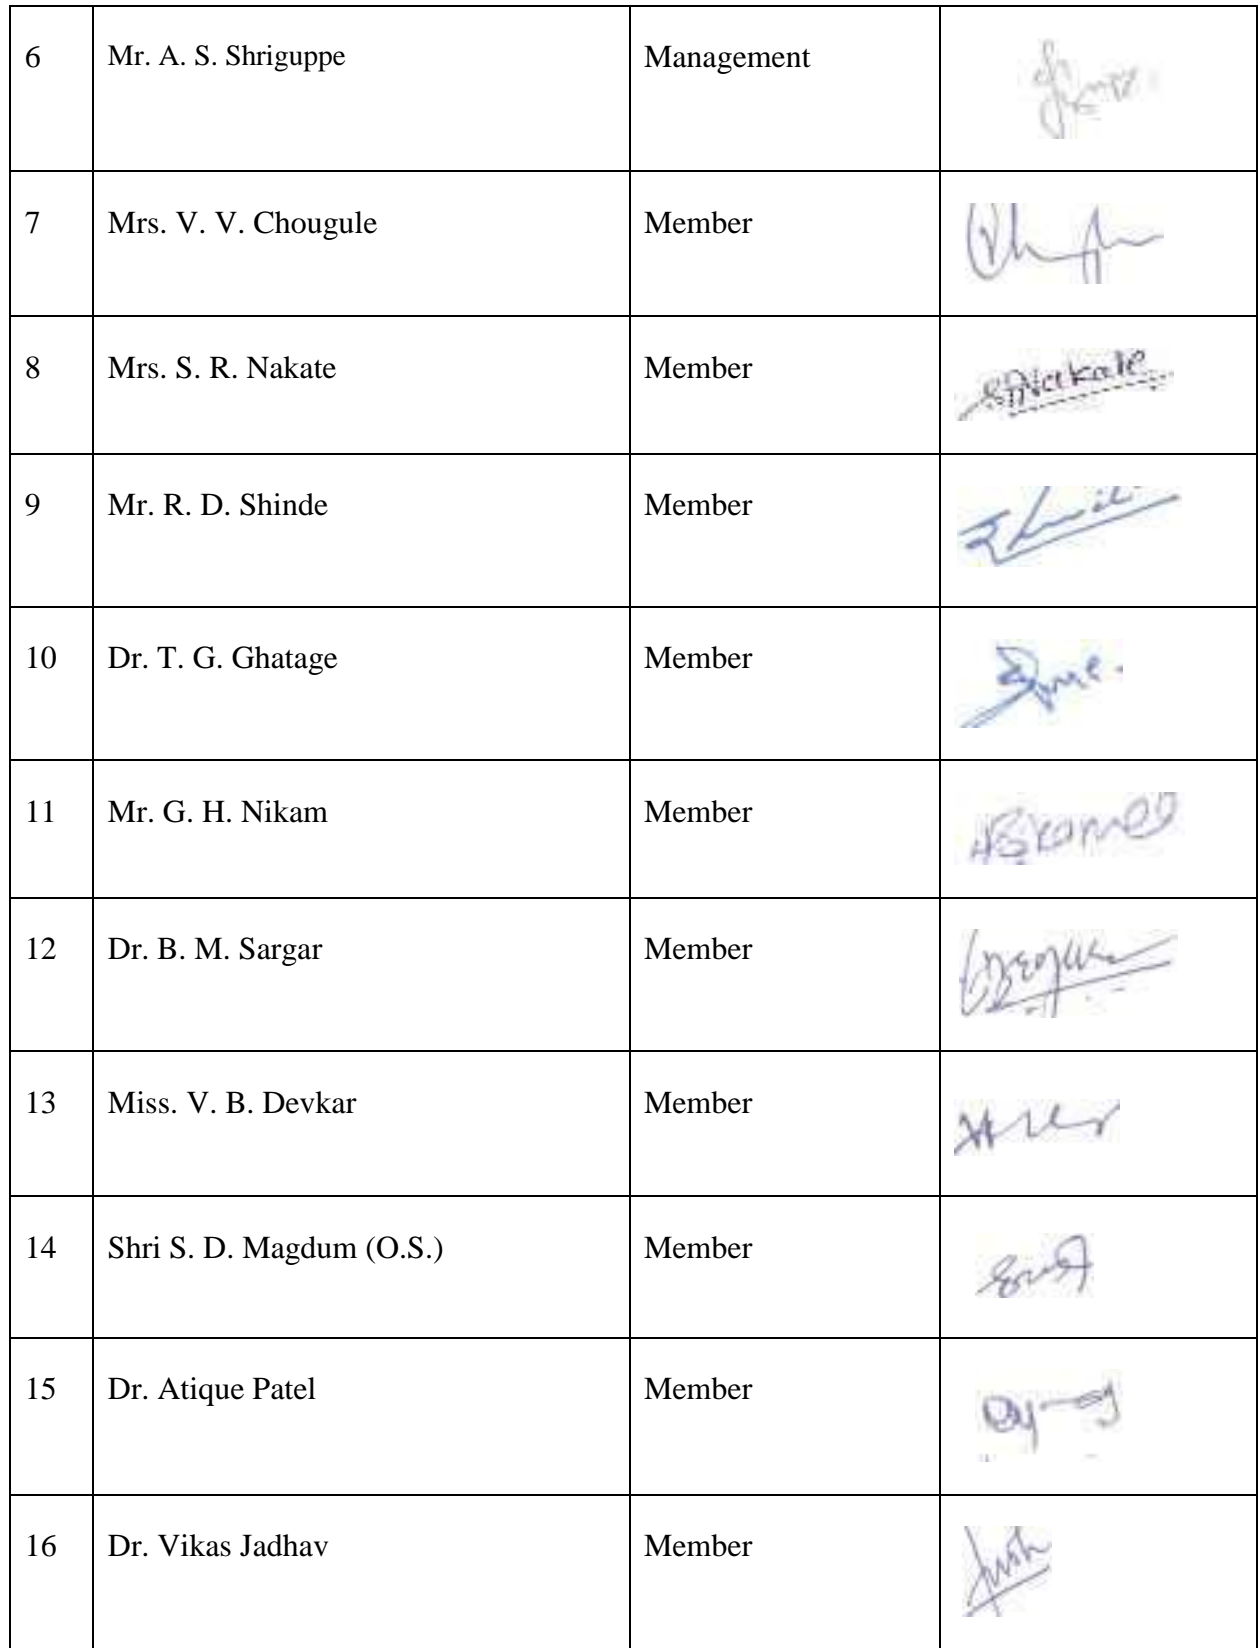 6 Mr. A. S. Shriguppe Management
7 Mrs. V. V. Chougule Member
8 Mrs. S. R. Nakate Member SRNakate
9 Mr. R. D. Shinde Member
10 Dr. T. G. Ghatage Member
11 Mr. G. H. Nikam Member
12 Dr. B. M. Sargar Member
13 Miss. V. B. Devkar Member
14 Shri S. D. Magdum (O.S.) Member
15 Dr. Atique Patel Member
16 Dr. Vikas Jadhav Member